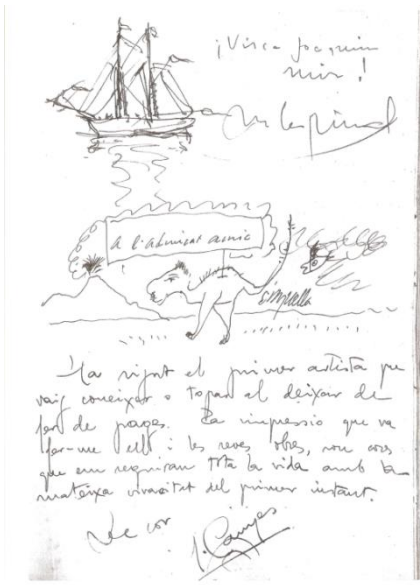 ¡Visca Joaquim
Mir!
A l'admirat amic
Ha sigut el primer artista que
vaig coneixer o topar al deixar de
fer de pages. La impressio que va
fer-me ell i les seves obres, son coses
que em seguiran tota la vida amb la
mateixa vivacitat del primer instant.
De cor